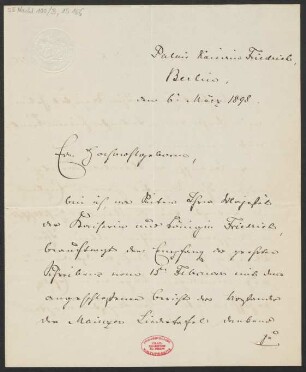 Palais Kaiserin Friedrich,
Berlin,
den 6. März 1898.
Ew. Hochwohlgeboren,
bin ich von Seiten Ihrer Majestät
der Kaiserin und Königin Friedrich,
beauftragt den Empfang des geehrten
Schreibens vom 15. Februar mit dem
angeschlossenen Bericht des Vorstandes
der Mainzer Liedertafel dankend
zu